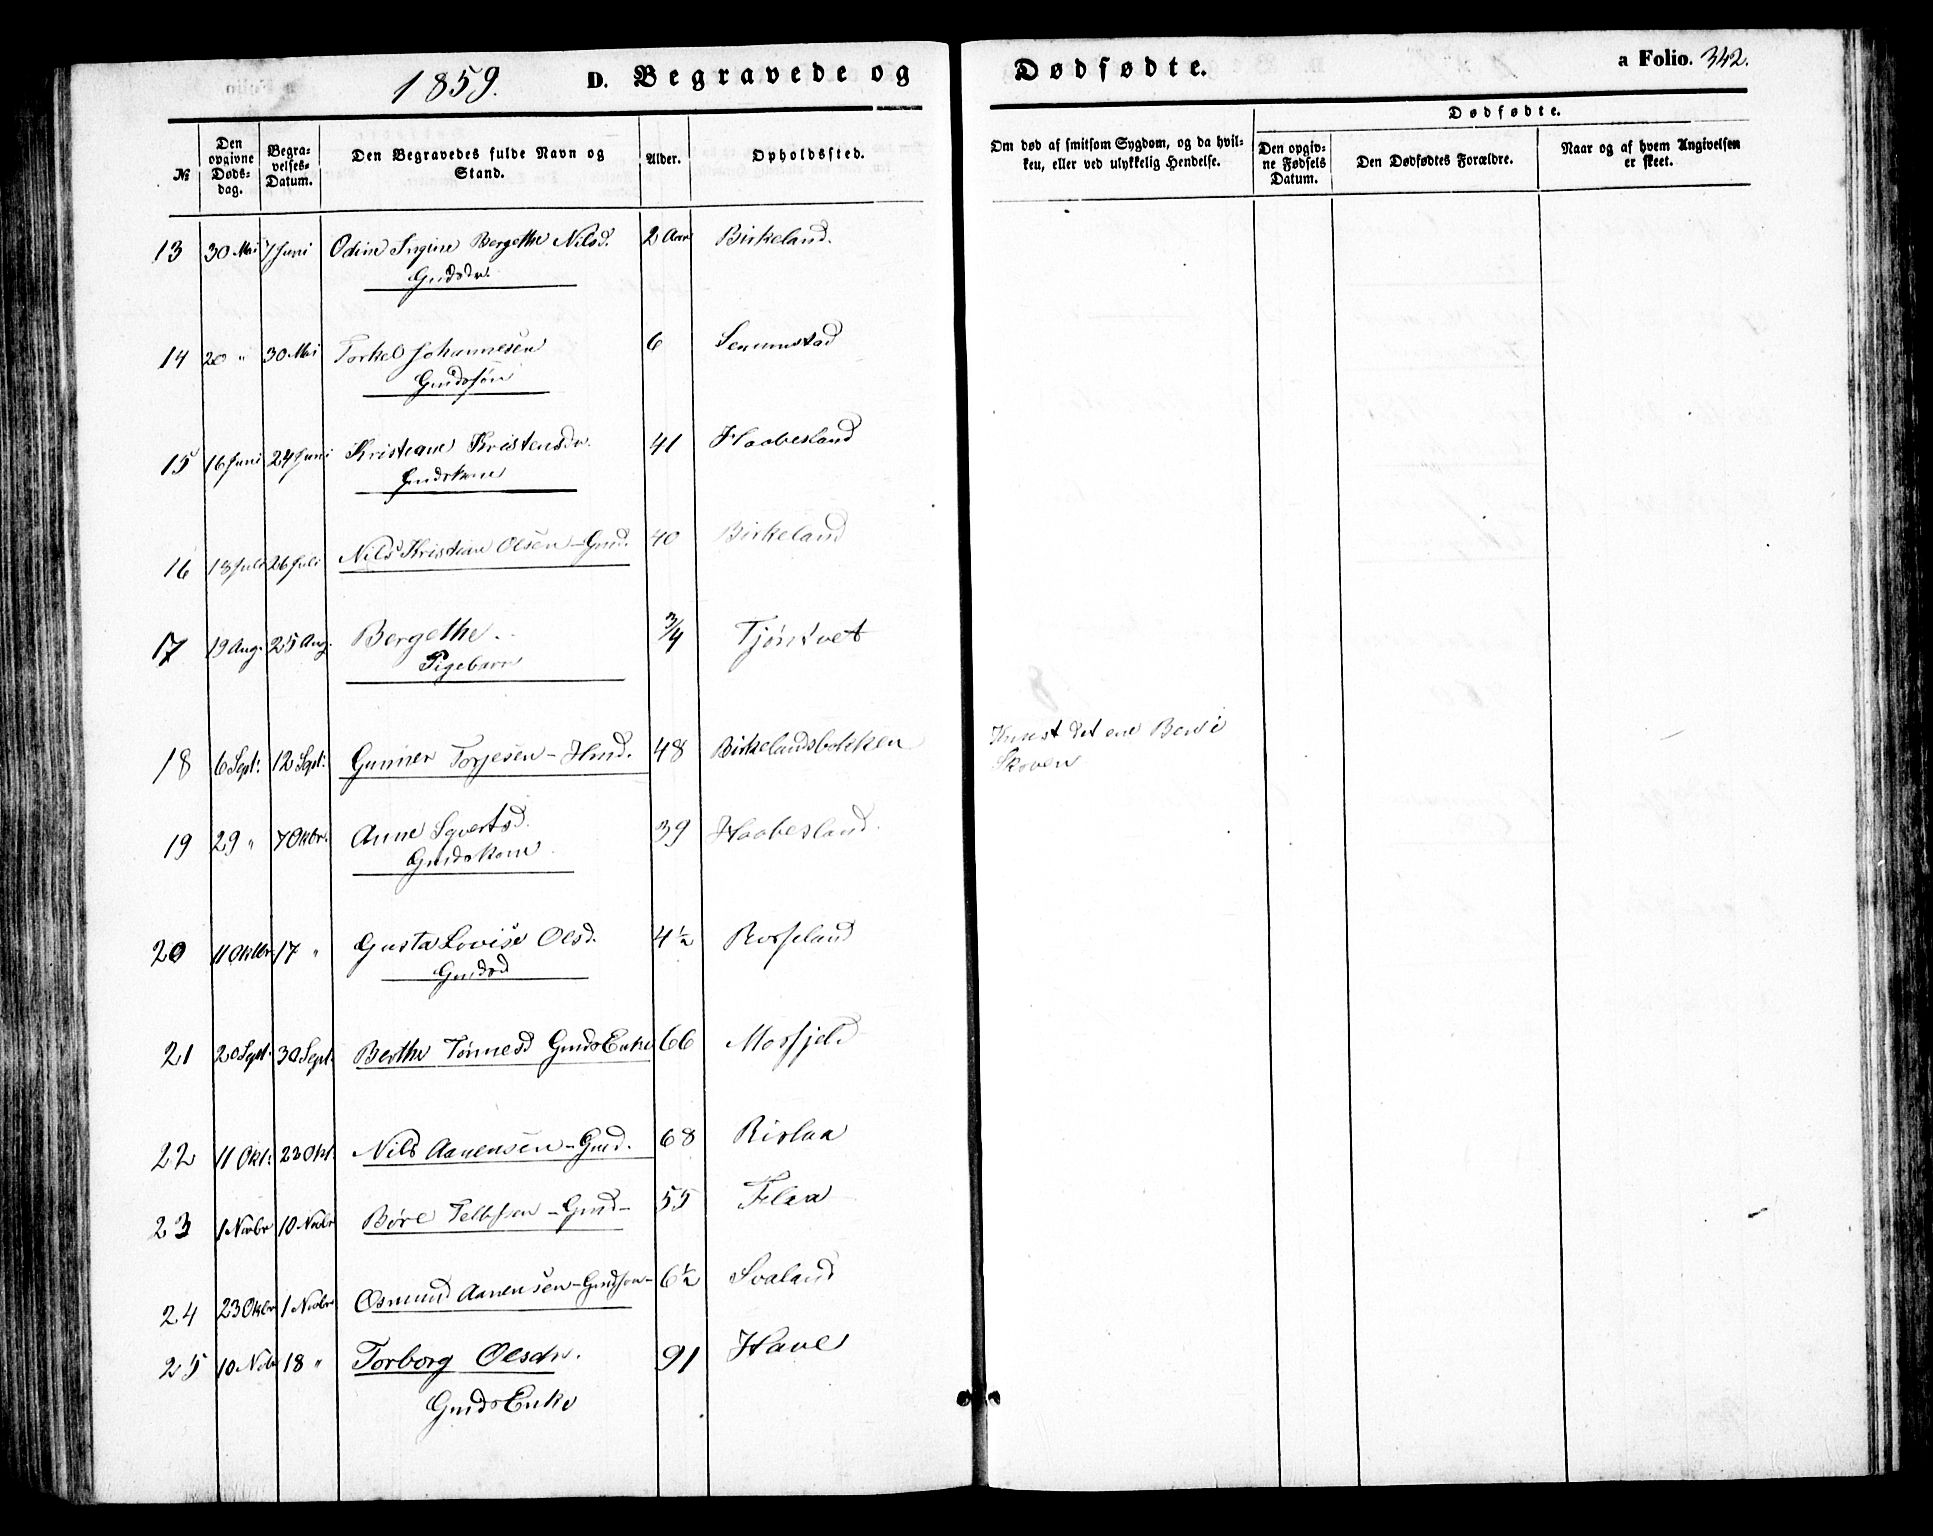 1859. D. Begravede og Dødfødte. a Folio. 342.
№ | Den opgivne Døds-dag. | Begra-velses-Datum. | Den Begravedes fulde Navn og Stand. | Alder. | Opholdssted. | Om død af smitsom Sygdom, og da hvil-ken, eller ved ulykkelig Hendelse. | Dødfødte. | Den opgiv-ne Fødsels Datum. | Den Dødfødtes Forældre. | Naar og af hvem Angivelsen er skeet.
13 30 Mai 7 Juni Odine Ingine Bergethe Nilsd. 2 Aar Birkeland.
Gmdsdr.
14 20 " 30 Mai Torkel Johannesen 6 Senumstad
Gmdssøn
15 16 Juni 24 Juni Kristiane Kristensdr. 41 Haabesland
Gmdskone
16 18 Juli 26 Juli Nils Kristian Olsen - Gmd. 40 Birkeland
17 19 Aug. 25 Aug. Bergethe. 3/4 Tjøntvet
Pigebarn
18 6 Sept: 12 Sept: Gunner Torjesen - Hmd. 48 Birkelandsbakken Knust det ene Ben i
Skoven
19 29 " 7 Oktbr. Anne Syvertsd. 39 Haabesland.
Gmdskone
20 11 Oktbr 17 " Gusta Lovise Olsd. 4½ Rosseland
Gmdsd
21 20 Sept: 30 Sept: Berthe Tønnesd Gmds Enke 66 Mosfjeld
22 11 Okt: 23 Okt. Nils Aanensen - Gmd. 68 Rislaa
23 1 Novbr 10 Novbr Børe Tellefsen - Gmd - 55 Flaa
24 23 Oktbr 1 Novbr Osmund Aanensen - Gmdsøn - 6½ Svaland
25 10 Nvbr 18 " Torborg Olsdr. 91 Have
Gmds Enke